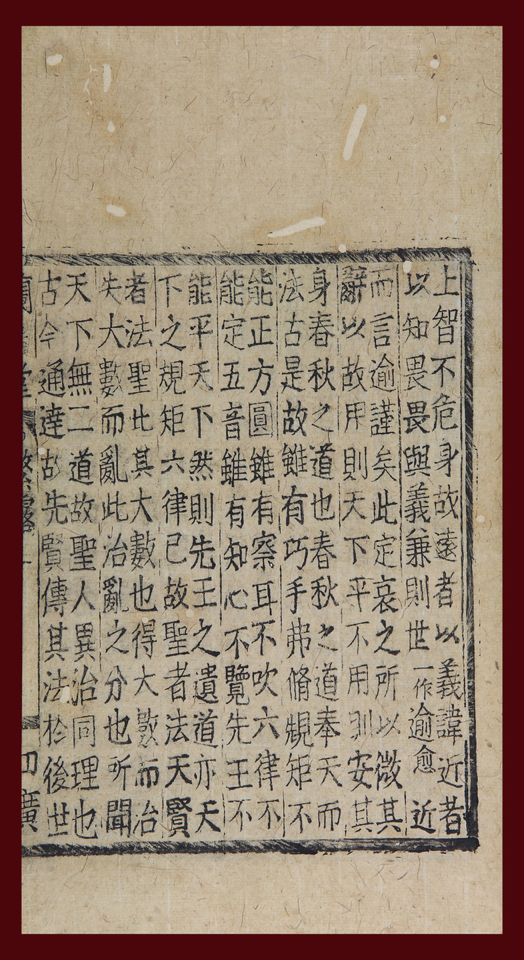 上智不危身故遠者以義諱近者
以知畏畏與義兼則世一作逾愈近
而言逾謹矣此定哀之所以微其
辭以故用則天下平不用則安其
身春秋之道也春秋之道奉天而
法古是故雖有巧手弗脩規矩不
能正方圓雖有察耳不吹六律不
能定五音雖有知心不覽先王不
能平天下然則先王之遺道亦天
下之規矩六律已故聖者法天賢
者法聖此其大數也得大數而治
失大數而亂此治亂之分也所聞
天下無二道故聖人異治同理也
古今通達故先賢傳其法於後世
堂